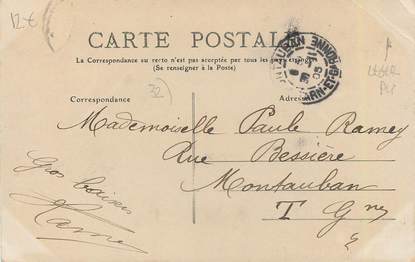 12€
CARTE POSTALE
La Correspondance au recto n'est pas acceptée par tous les pays étrangers
(Se renseigner à la Poste)
MONTAUBAN
TARN-ET-GARONNE
32
Correspondance
Adresse
Mademoiselle Paule Ramey
Rue Bessière
Montauban
T Gne
Gros baisers